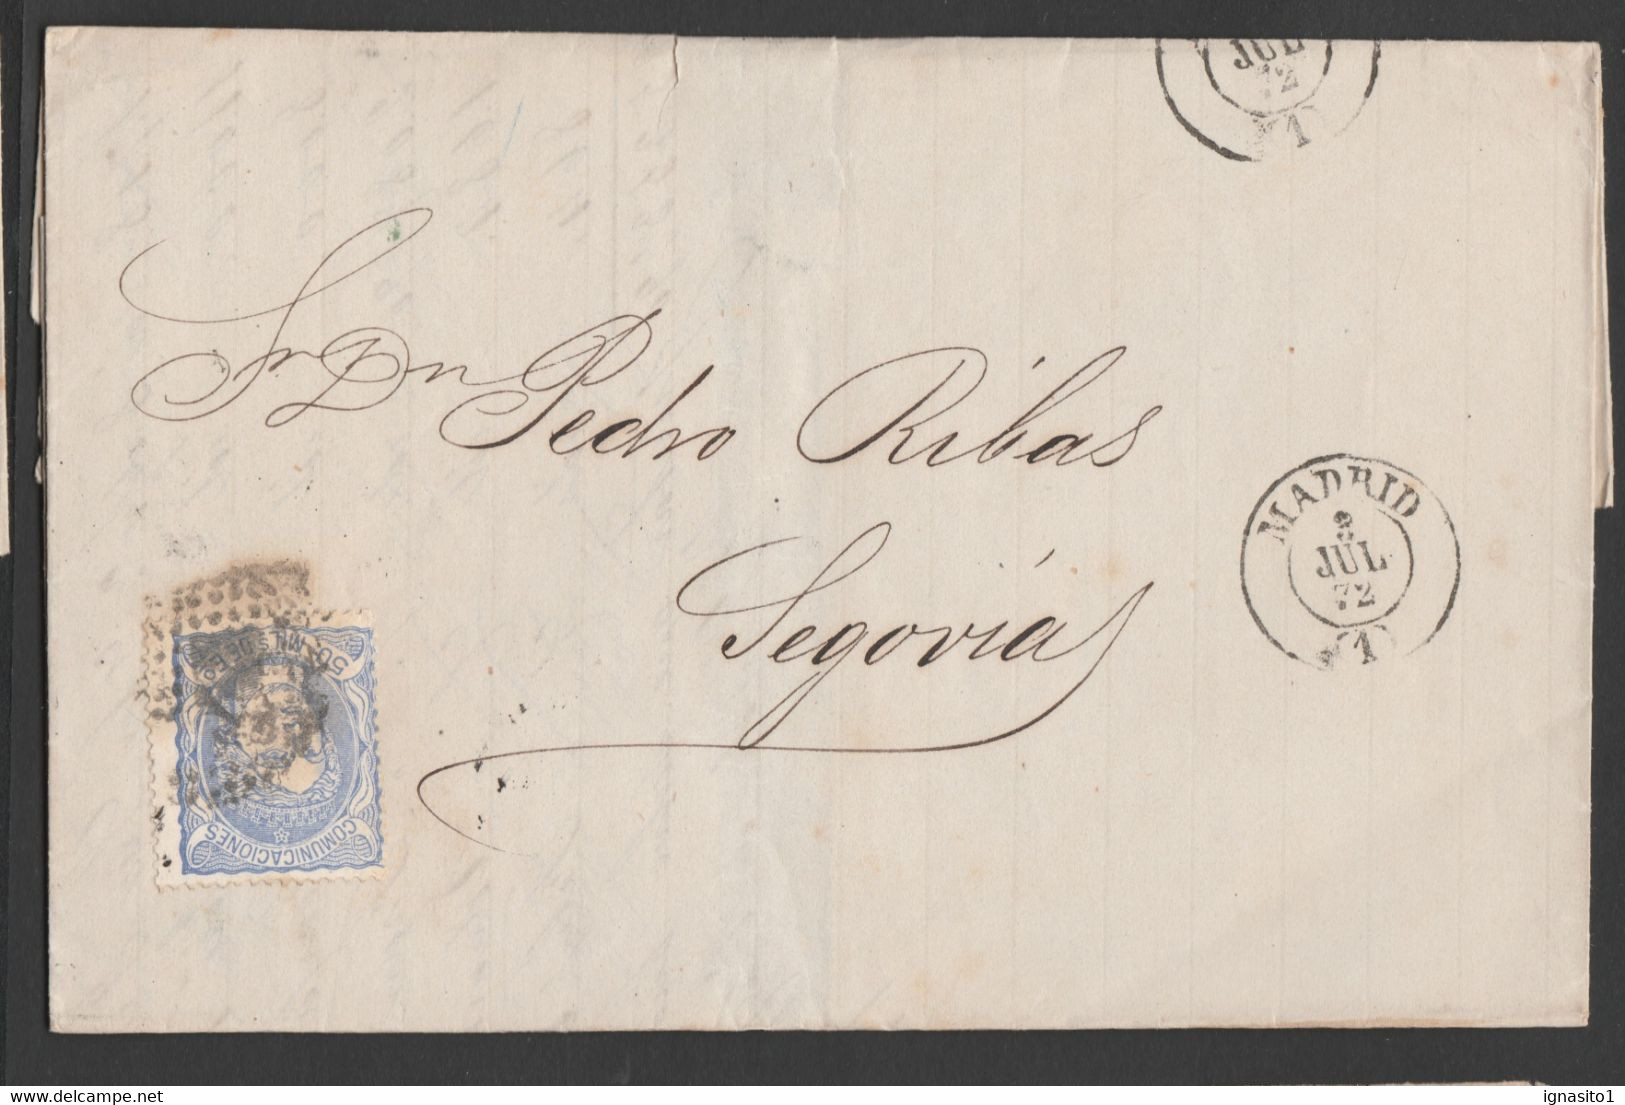 JUL
72
(1)
Sr Dn Pedro Ribas
Segovia
MADRID
3
JUL
72
(1)
50 MILS DE E
COMUNICACIONES
ignasito1